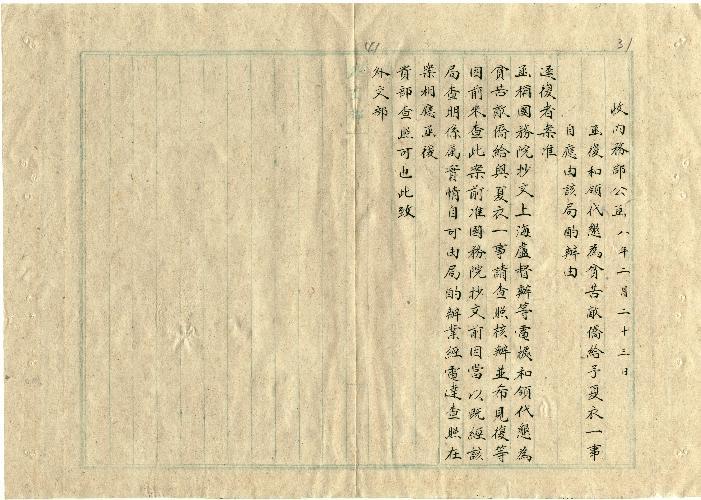 31
收內務部公函八年二月二十三日
函復和領代懇為貧苦敵僑給予夏衣一事
自應由該局酌辦由
逕復者案准
函稱國務院抄交上海盧督辦等電據和領代懇為
貧苦敵僑給與夏衣一事請查照核辦並布見復等
因前來查此案前准國務院抄交前因當以既經該
局查明係屬實情自可由局酌辦業經電達查照在
案相應函復
貴部查照可也此致
外交部
41